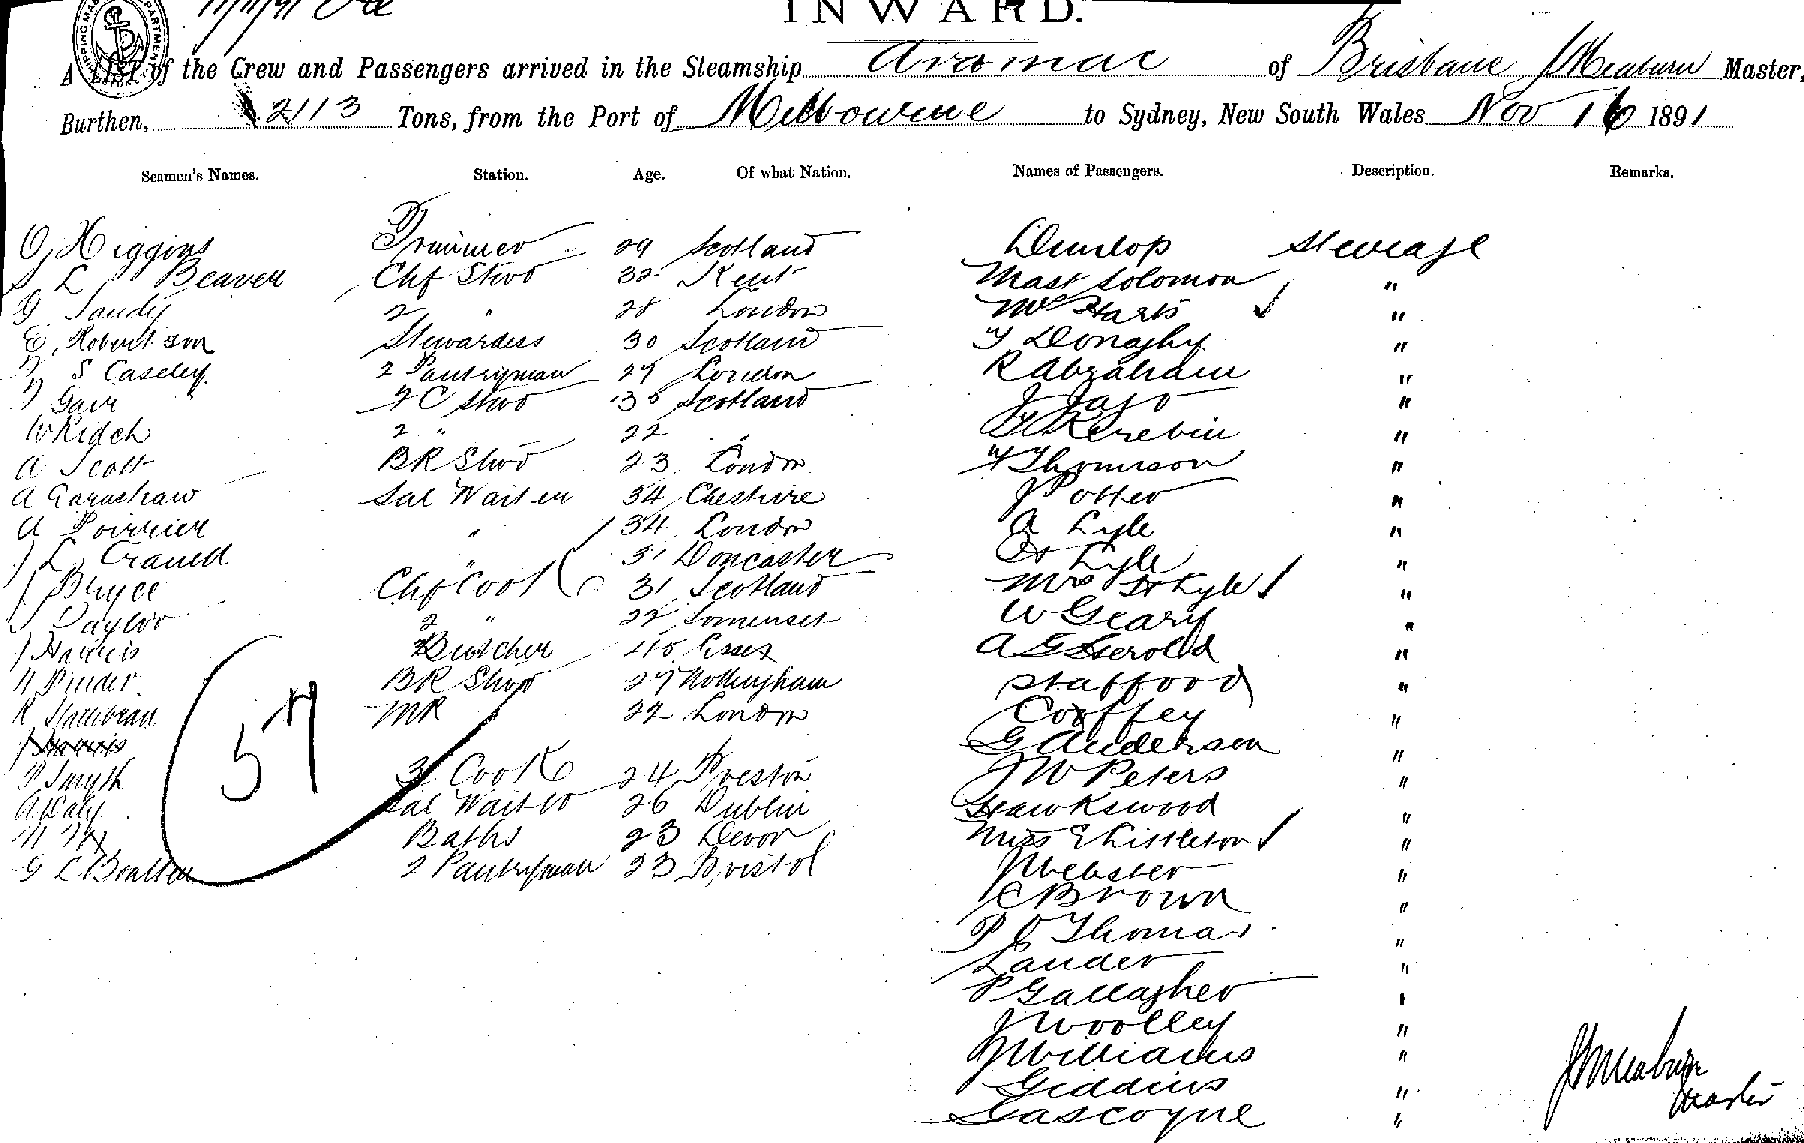 INWARD.
A List of the Crew and Passengers arrived in the Steamship Aramac of Brisbane J Meaburn Master,
Burthen, 2113 Tons, from the Port of Melbourne to Sydney, New South Wales Nov 16 1891
Seamen's Names. Station. Age. Of what Nation. Names of Passengers. Description. Remarks.
J Higgins Trimmer 29 Scotland Dunlop Steerage
L Beaver Chf Stwd 32 Kent Mast Solomon "
G Sandy 2 " 28 London "
E Robertson Stewardess 30 Scotland Donaghy "
S Caseley 2 Pantryman 29 London R Abraham "
Gair Stwd Scotland J Jago "
W 2 " 22 " "
A Scott BR Stwd 23 London Thomson "
A Earnshaw Sal Waiter 34 Cheshire J Potter "
A Poirrier " 34 London A Lyle "
" 31 Doncaster Lyle "
J Bryce Chf Cook 31 Scotland Mrs Lyle "
Taylor 2 " 22 Somerset W Geary "
J Harris Butcher Essex A G Gerold "
Pinder BR Stwd 27 Nottingham Stafford "
MR 22 London Coffey "
J Harris G Anderson "
P Smyth 3 Cook 24 Preston J W Peters "
A Daly Sal Waiter 26 Dublin Hawkswood "
Baths 23 Devon Miss E Littleton "
G L Boulton 2 Pantryman 23 Bristol J Webster "
57
C Brown "
P J Thomas "
Lander "
P Gallagher "
J Woolley "
Williams "
Giddins "
Gascoyne "
J Meaburn
Master